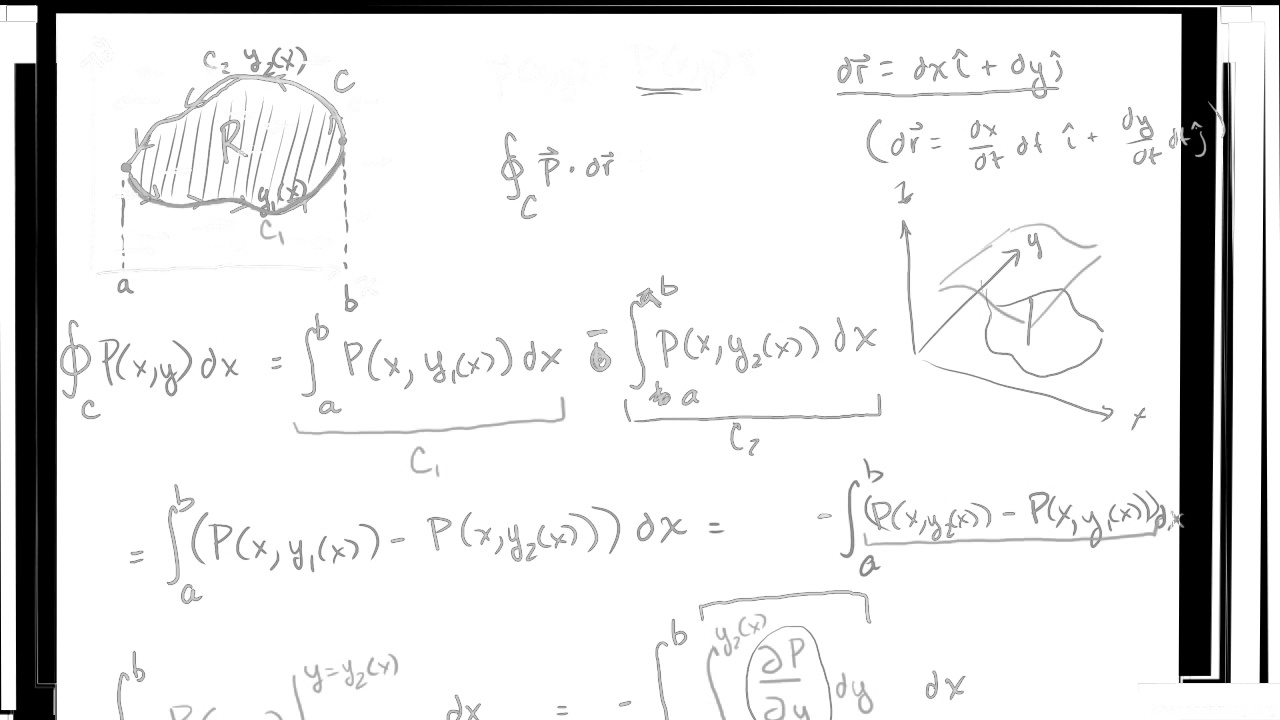 C₂ y₂(x)
C
R
y₁(x)
C₁
a
b
∮_C P⃗ · dr⃗
dr⃗ = dx î + dy ĵ
(dr⃗ = dx/dt dt î + dy/dt dt ĵ)
y
x
∮_C P(x,y) dx = ∫_a^b P(x, y₁(x)) dx - ∫_a^b P(x, y₂(x)) dx
C₁
C₂
= ∫_a^b (P(x, y₁(x)) - P(x, y₂(x))) dx = - ∫_a^b (P(x, y₂(x)) - P(x, y₁(x))) dx
y = y₂(x) dx = - ∫^b ∫^{y₂(x)} ∂P/∂y dy dx